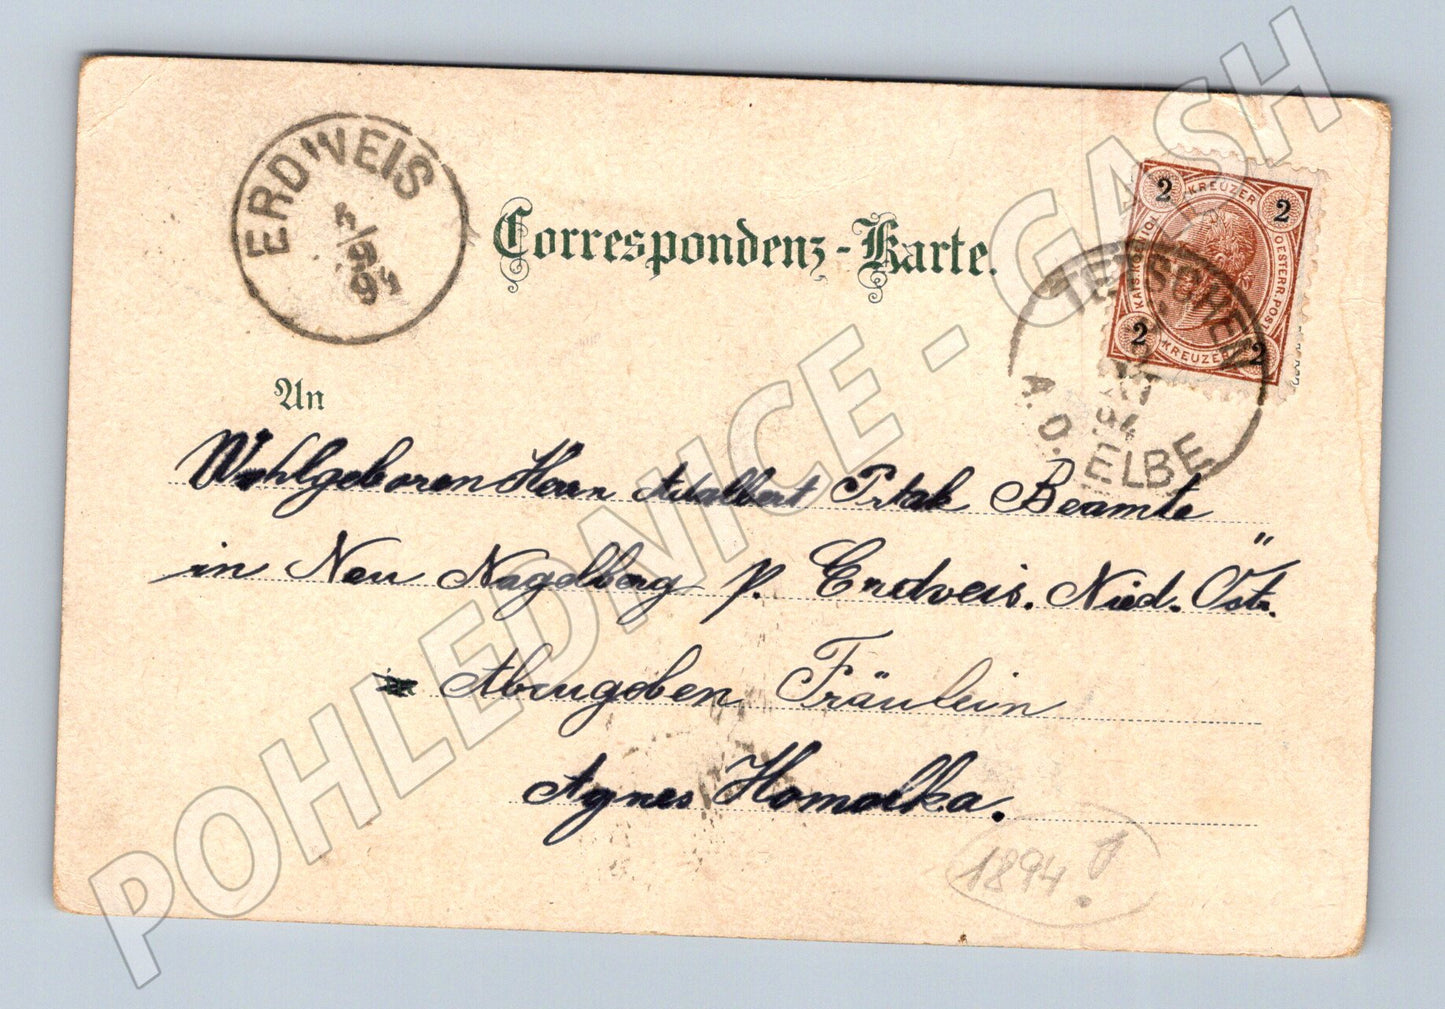 ERDWEIS
94
Correspondenz-Karte.
2 KREUZER 2
KAIS. KÖNIGL. OESTERR. POST
2 KREUZER 2
TETSCHEN
94
A. D. ELBE
An
Wohlgeboren Herrn Adalbert Ptak Beamte
in Neu Nagelberg p. Erdveis. Nied. Östr.
Abzugeben Fräulein
Agnes Homolka.
1894!
POHLEDNICE - GASH